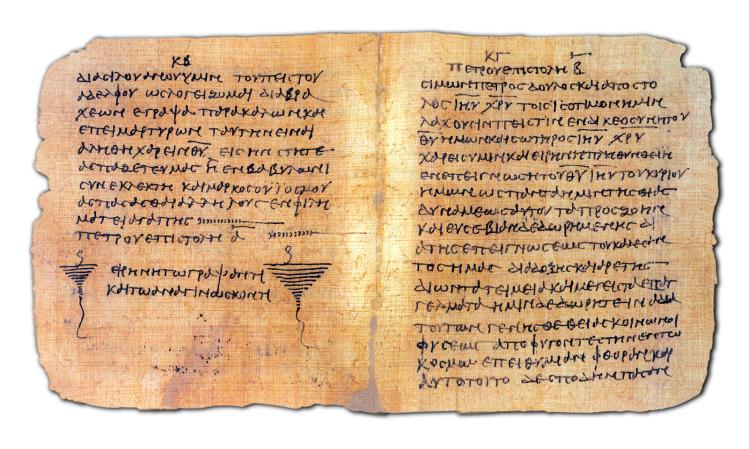 ΚΒ
ΔΙΑ ϹΙΛΟΥΑΝΟΥ ΥΜΙΝ ΤΟΥ ΠΙϹΤΟΥ
ΑΔΕΛΦΟΥ ΩϹ ΛΟΓΕΙΖΟΜΑΙ ΔΙΑ ΒΡΑ
ΧΕΩΝ ΕΓΡΑΨΑ ΠΑΡΑΚΑΛΩΝ ΚΑΙ
ΕΠΕΙΜΑΡΤΥΡΩΝ ΤΑΥΤΗΝ ΕΙΝΑΙ
ΑΛΗΘΗ ΧΑΡΕΙΝ Θ̅Υ̅ ΕΙϹ ΗΝ ϹΤΗΤΕ
ΑϹΠΑΖΕΤΕ ΥΜΑϹ Η ΕΝ ΒΑΒΥΛΩΝΙ
ϹΥΝΕΚΛΕΚΤΗ ΚΑΙ ΜΑΡΚΟϹ Ο ΥΙΟϹ ΜΟΥ
ΑϹΠΑϹΑϹΘΑΙ ΑΛΛΗΛΟΥϹ ΕΝ ΦΙΛΗ
ΜΑΤΕΙ ΑΓΑΠΗϹ
ΠΕΤΡΟΥ ΕΠΙϹΤΟΛΗ Α̅
ΕΙΡΗΝΗ ΤΩ ΓΡΑΨΑΝΤΙ
ΚΑΙ ΤΩ ΑΝΑΓΙΝΩϹΚΟΝΤΙ
ΚΓ
ΠΕΤΡΟΥ ΕΠΙϹΤΟΛΗ Β̅
ϹΙΜΩΝ ΠΕΤΡΟϹ ΔΟΥΛΟϹ ΚΑΙ ΑΠΟϹΤΟ
ΛΟϹ Ι̅Η̅Υ̅ Χ̅Ρ̅Υ̅ ΤΟΙϹ ΙϹΟΤΙΜΟΝ ΗΜΙΝ
ΛΑΧΟΥϹΙΝ ΠΕΙϹΤΙΝ ΕΝ ΔΙΚΕΟϹΥΝΗ ΤΟΥ
Θ̅Υ̅ ΗΜΩΝ ΚΑΙ ϹΩΤΗΡΟϹ Ι̅Η̅Υ̅ Χ̅Ρ̅Υ̅
ΧΑΡΕΙϹ ΥΜΙΝ ΚΑΙ ΕΙΡΗΝΗ ΠΛΗΘΥΝΘΕΙΗ
ΕΝ ΕΠΕΙΓΝΩϹΗ ΤΟΥ Θ̅Υ̅ Ι̅Η̅Υ̅ ΤΟΥ ΚΥΡΙΟΥ
ΗΜΩΝ ΩϹ ΠΑΝΤΑ ΗΜΙΝ ΤΗϹ ΘΕΙΑϹ
ΔΥΝΑΜΕΩϹ ΑΥΤΟΥ ΤΑ ΠΡΟϹ ΖΩΗΝ
ΚΑΙ ΕΥϹΕΒΙΑΝ ΔΕΔΩΡΗΜΕΝΗϹ ΔΙ
Α ΤΗϹ ΕΠΕΙΓΝΩϹΕΩϹ ΤΟΥ ΚΑΛΕϹΑΝ
ΤΟϹ ΗΜΑϹ ΔΙΑ ΔΟΞΗϹ ΚΑΙ ΑΡΕΤΗϹ
ΔΙ ΩΝ ΤΑ ΤΕΙΜΕΙΑ ΚΑΙ ΜΕΓΕΙϹΤΑ ΕΠΑΓ
ΓΕΛΜΑΤΑ ΗΜΙΝ ΔΕΔΩΡΗΤΕ ΙΝΑ ΔΙΑ
ΤΟΥΤΩΝ ΓΕΝΗϹΘΕ ΘΕΙΑϹ ΚΟΙΝΩΝΟΙ
ΦΥϹΕΩϹ ΑΠΟΦΥΓΟΝΤΕϹ ΤΗΝ ΕΝ ΤΩ
ΚΟϹΜΩ ΕΠΕΙΘΥΜΙΑΝ ΦΘΟΡΑΝ ΚΑΙ
ΑΥΤΟ ΤΟΥΤΟ ΔΕ ϹΠΟΥΔΗΝ ΠΑϹΑΝ